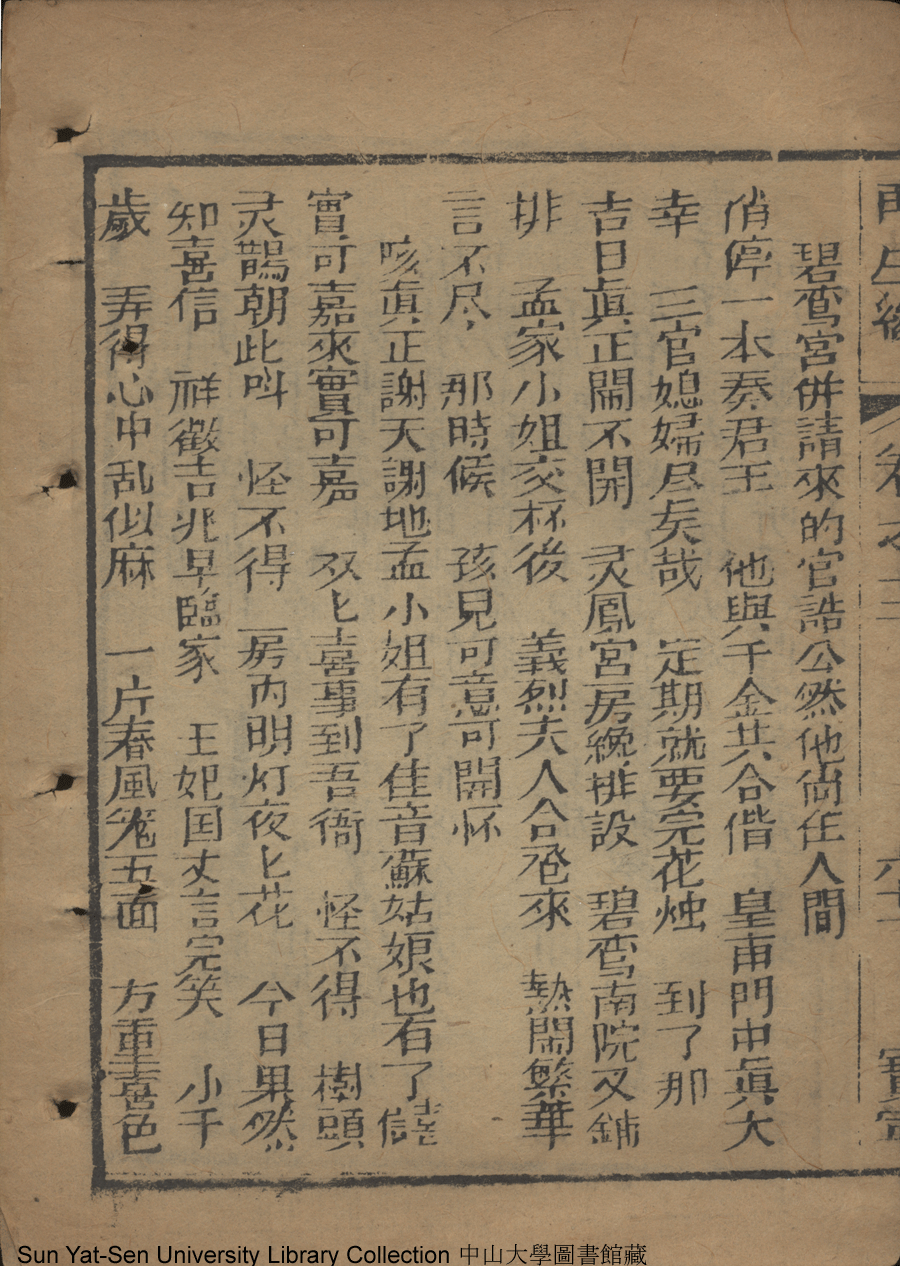 卷之三
六十一
碧鸾宮併請來的官誥公然他尚在人間
俏停一本奏君王 他與千金共合偕 皇甫門中眞大
幸 三官媳婦尽矣哉 定期就要完花烛 到了那
吉日眞正閙不開 灵鳳宮房總排設 碧鸾南院又鋪
排 孟家小姐交杯後 義烈夫人合卺來 熱閙繁華
言不尽 那時候 孩兒可意可開怀
咳眞正謝天謝地孟小姐有了佳音蘇姑娘也有了
實可嘉來實可嘉 双匕喜事到吾衙 怪不得 樹頭
灵鵲朝此叫 怪不得 房内明灯夜匕花 今日果然
知喜信 祥徵吉兆早臨家 王妃国丈言完笑 小千
歲 弄得心中乱似麻 一片春風笼五面 方重喜色
Sun Yat-Sen University Library Collection 中山大學圖書館藏